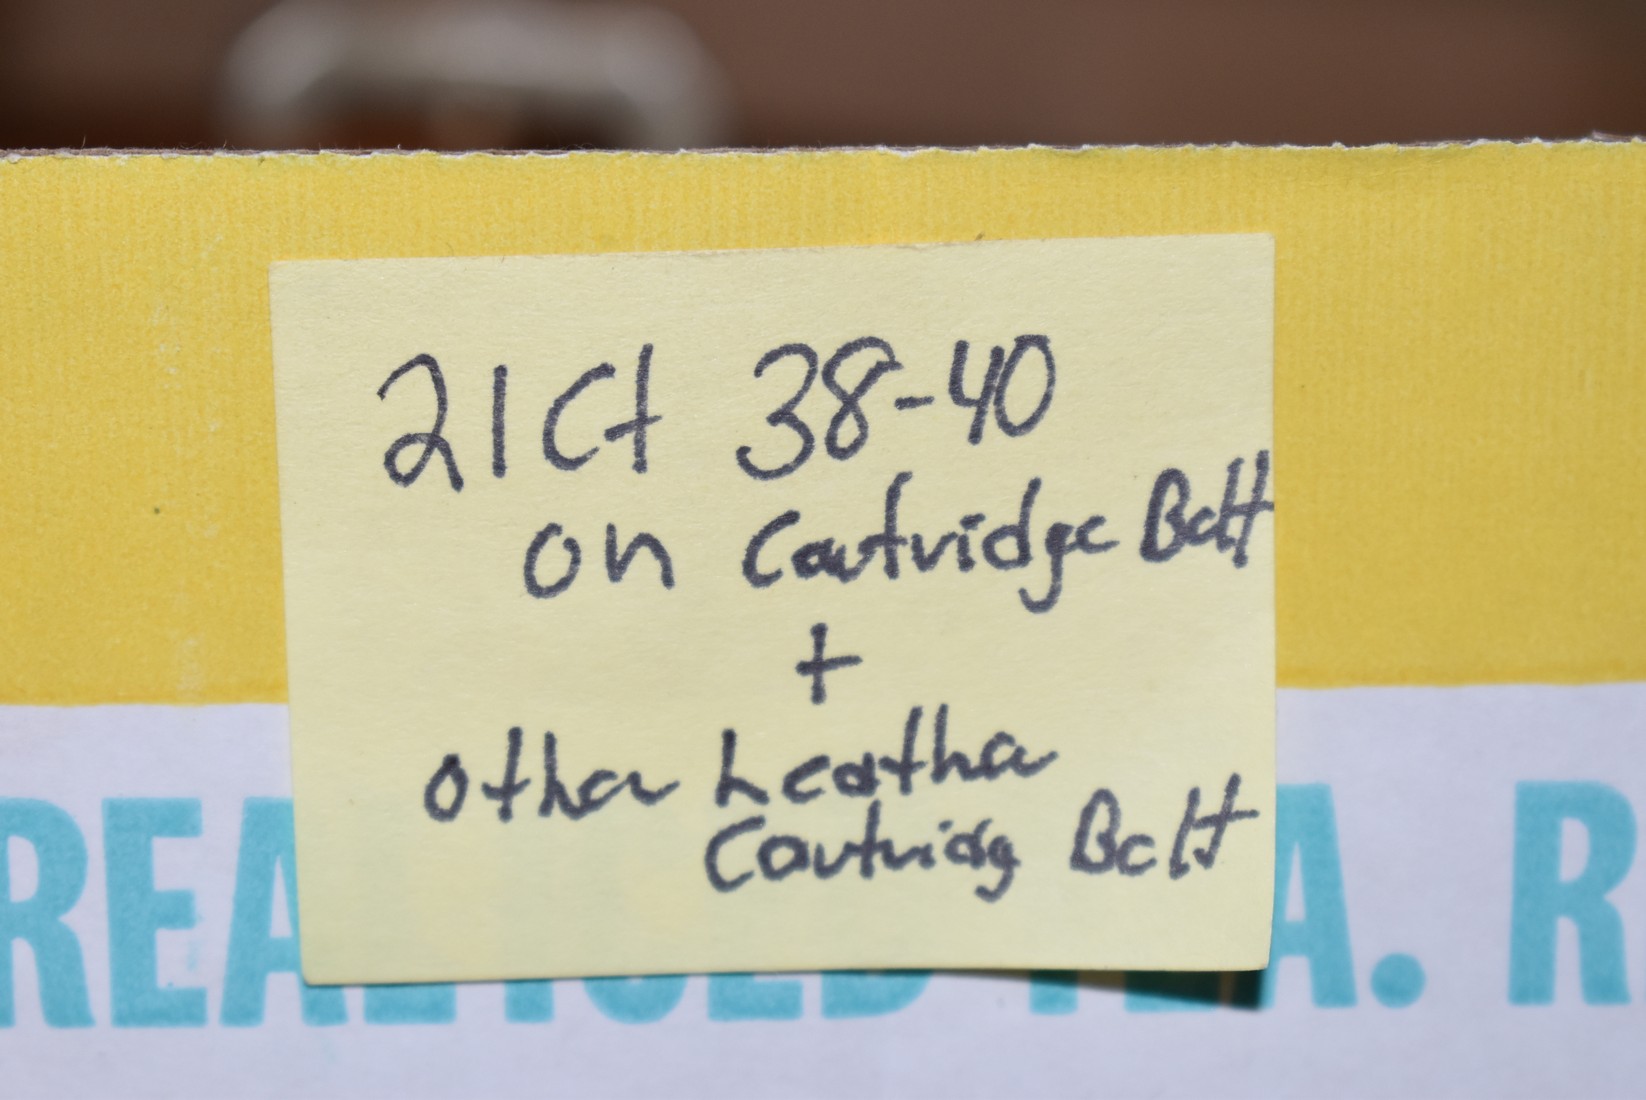 21 Ct 38-40
on Cartridge Belt
+
other Leather
Cartridg Belt
REAL ICED TEA. R